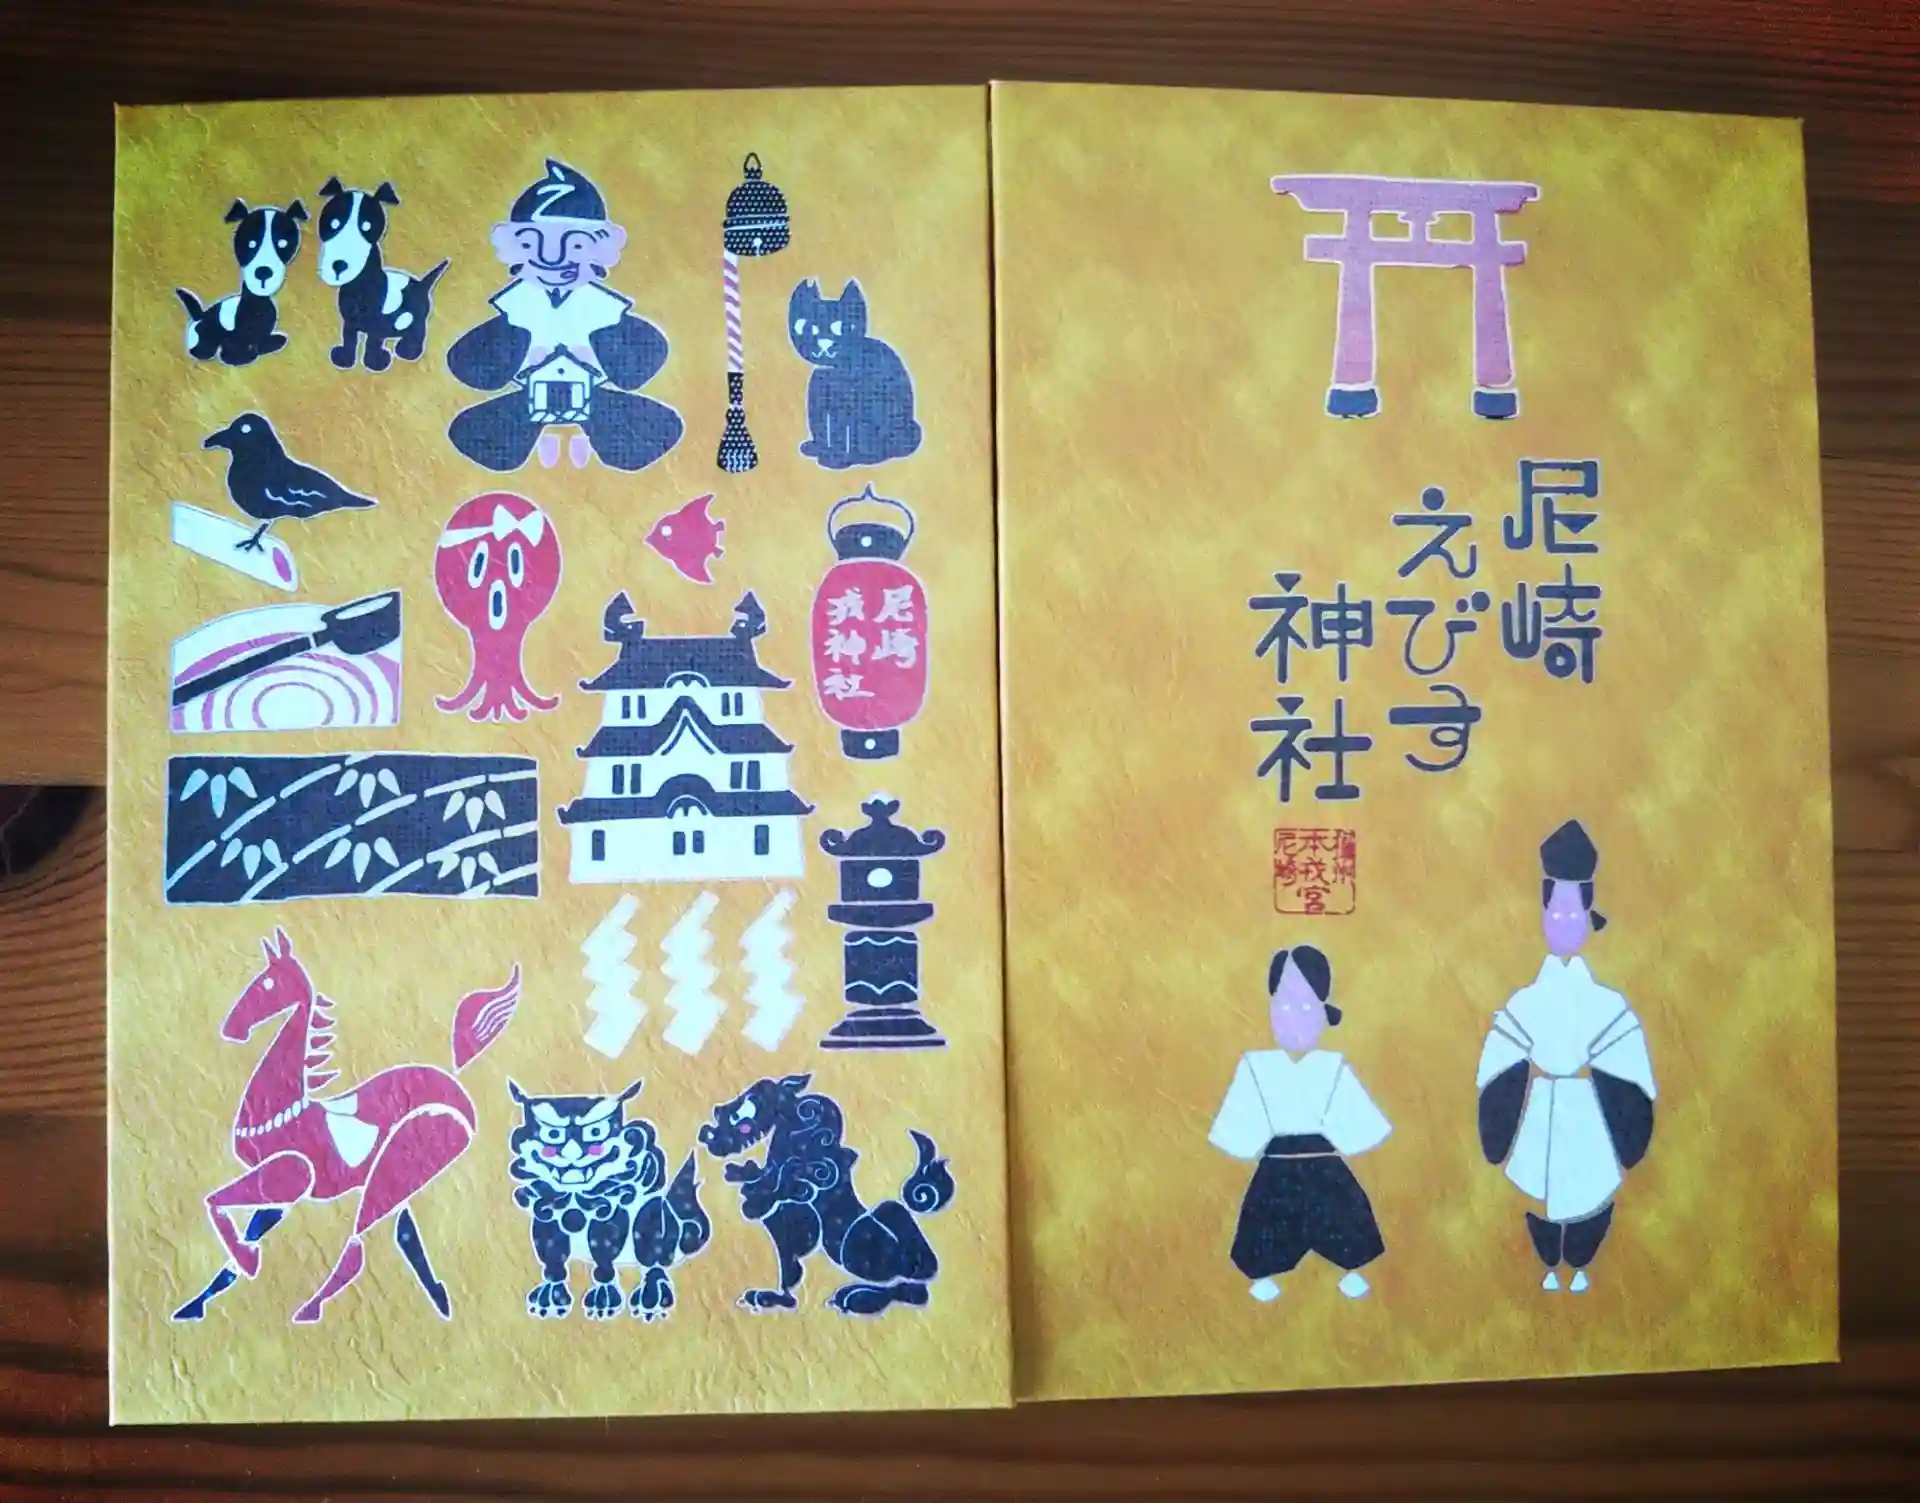 尼崎
えびす
神社
攝州
本戎宮
尼崎
え
尼崎
戎神社